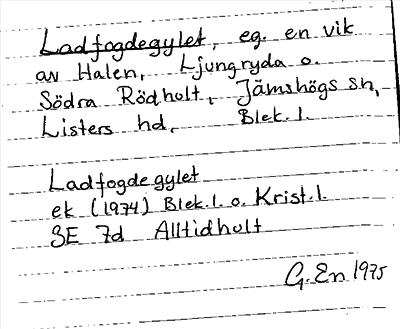 Ladfogdegylet, eg. en vik
av Halen, Ljungryda o.
Södra Rödhult, Jämshögs sn,
Listers hd, Blek. l.
Ladfogdegylet
ek (1974) Blek. l. o. Krist. l.
3E 7d Alltidhult
G. En 1975